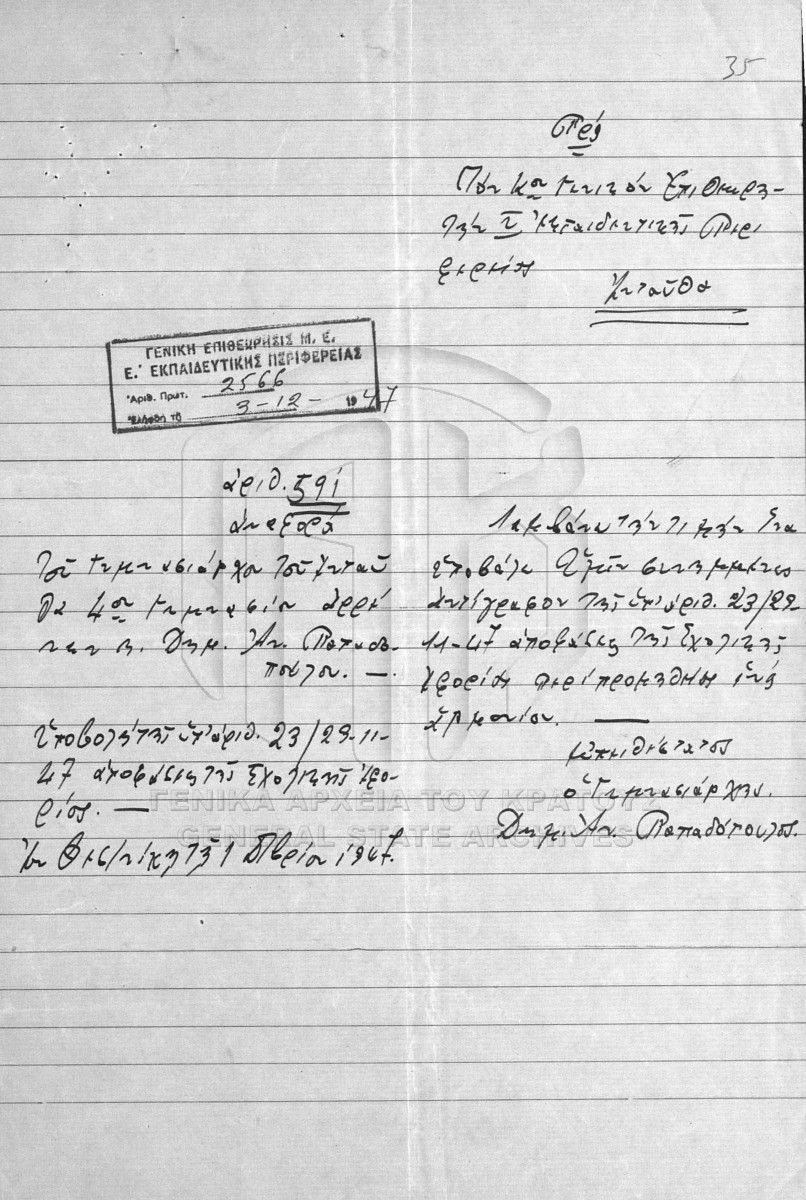 35
Πρὸς
Τὸν κον Γενικὸν Ἐπιθεωρη-
τὴν Ε' Ἐκπαιδευτικῆς Περι
φερείας
Ἐνταῦθα
ΓΕΝΙΚΗ ΕΠΙΘΕΩΡΗΣΙΣ Μ. Ε.
Ε.' ΕΚΠΑΙΔΕΥΤΙΚΗΣ ΠΕΡΙΦΕΡΕΙΑΣ
Ἀριθ. Πρωτ. 2566
Ἐλήφθη τῇ 3-12- 1947
ἀριθ. 591
Ἀναφορά
Τοῦ Γυμνασιάρχου τοῦ ἐνταῦ
θα 4ου Γυμνασίου ἀρρέ
νων κ. Δημ. Ἀν. Παπαδο
πούλου. —
Ὑποβολὴ τῆς ὑπ' ἀριθ. 23/29-11-
47 ἀποφάσεως τῆς Σχολικῆς Ἐφο-
ρείας. —
Ἐν Θεσ/νίκῃ τῇ 1 Δβρίου 1947.
Λαμβάνω τὴν τιμὴν ἵνα
ὑποβάλω Ὑμῖν συνημμένως
ἀντίγραφον τῆς ὑπ' ἀριθ. 23/29
11-47 ἀποφάσεως τῆς Σχολικῆς
Ἐφορείας περὶ προμηθείας ἑνὸς
ἁρμονίου. —
Εὐπειθέστατος
ὁ Γυμνασιάρχης.
Δημ. Ἀν. Παπαδόπουλος.
ΓΕΝΙΚΑ ΑΡΧΕΙΑ ΤΟΥ ΚΡΑΤΟΥΣ
GENERAL STATE ARCHIVES